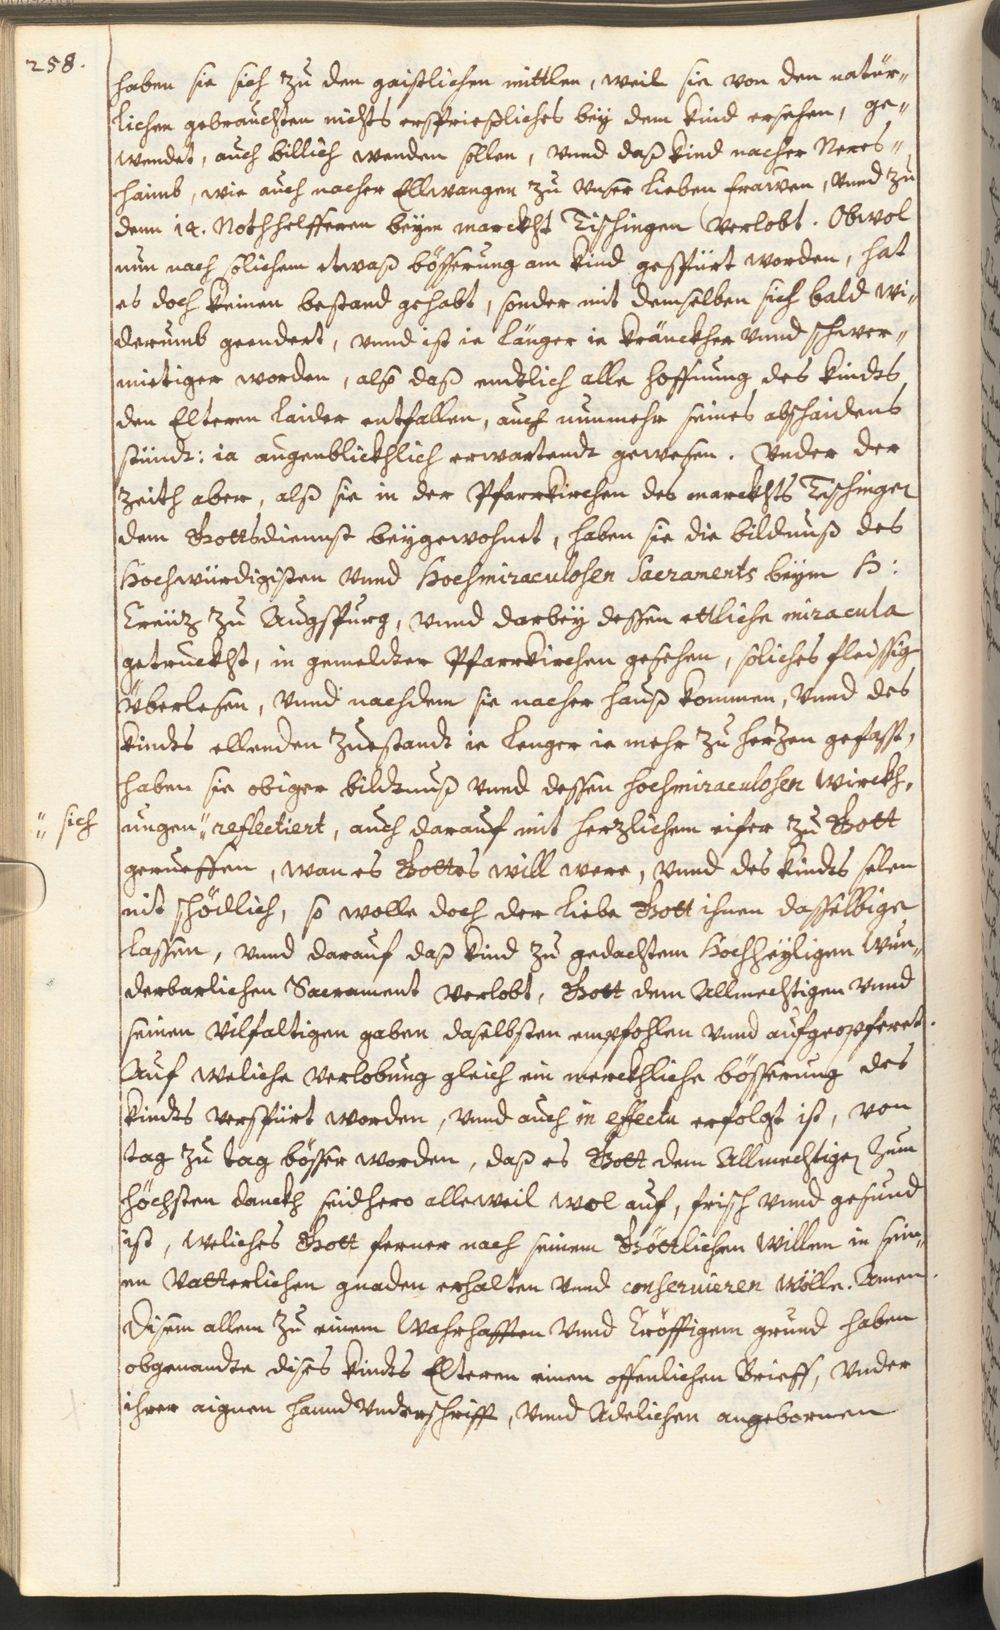 258.
haben sie sich zu den gaistlichen mittlen, weil sie von den natür„
lichen gebrauchten nichts ersprießliches bey dem kind ersehen, ge„
wendet, auch billich wenden sollen, vnnd daß kind nacher Neres„
haimb, wie auch nacher Ellwangen zu vnser lieben frawen, vnnd zu
denn 14. Nothhelfferen beym marckht Tischingen verlobt. Obwol
nun nach solichem etwaß bösserung am kind gespürt worden, hat
es doch keinen bestand gehabt, sonder mit demselben sich bald wi„
derumb geendert, vnnd ist ie länger ie kränckher vnnd schwer„
mietiger worden, alß daß endtlich alle hoffnung des kindts
den Elteren laider entfallen, auch nunmehr seines abschaidens
stündt: ia augenblickhlich erwartendt gewesen. Vnder der
zeith aber, alß sie in der Pfarrkirchen des marckhts Tischingen
dem Gottsdiennst beygewohnet, haben sie die bildnuß des
Hochwürdigisten vnnd Hochmiraculosen Sacraments beym H:
Creütz zu Augspurg, vnnd darbey dessen ettliche miracula
getruckht, in gemeldter Pfarrkirchen gesehen, soliches fleissig
überlesen, vnnd nachdem sie nacher hauß kommen, vnnd des
kindts ellenden zuestandt ie lenger ie mehr zu herzen gefasst,
haben sie obiger bildtnuß vnnd dessen hochmiraculosen wirckh„
„ sich
ungen „ reflectiert, auch darauf mit herzlichem eifer zu Gott
gerueffen, wan es Gottes will were, vnnd des kindts selen
nit schödlich, so wolle doch der liebe Gott ihnen dasselbige
lassen, vnnd darauf daß kind zu gedachtem Hochheyligen wun„
derbarlichen Sacrament verlobt, Gott dem Allmechtigen vnnd
seinen vilfaltigen gaben daselbsten empfohlen vnnd aufgeopferet.
Auf weliche verlobung gleich ein merckhliche bösserung des
kindts verspürt worden, vnnd auch in effectu erfolgt ist, von
tag zu tag bösser worden, daß es Gott dem Allmechtigen zum
höchsten danckh seidhero alleweil wol auf, frisch vnnd gesund
ist, weliches Gott ferner nach seinem Göttlichen willen in sein„
en Vatterlichen gnaden erhalten vnnd conservieren wölle. Amen.
Disem allem zu einem wahrhafften vnnd cröfftigem grund haben
obgenandte dises kindts Elteren einen offenlichen Brieff, vnder
ihrer aignen hannd vnderschrifft, vnnd Adelichen angebornen